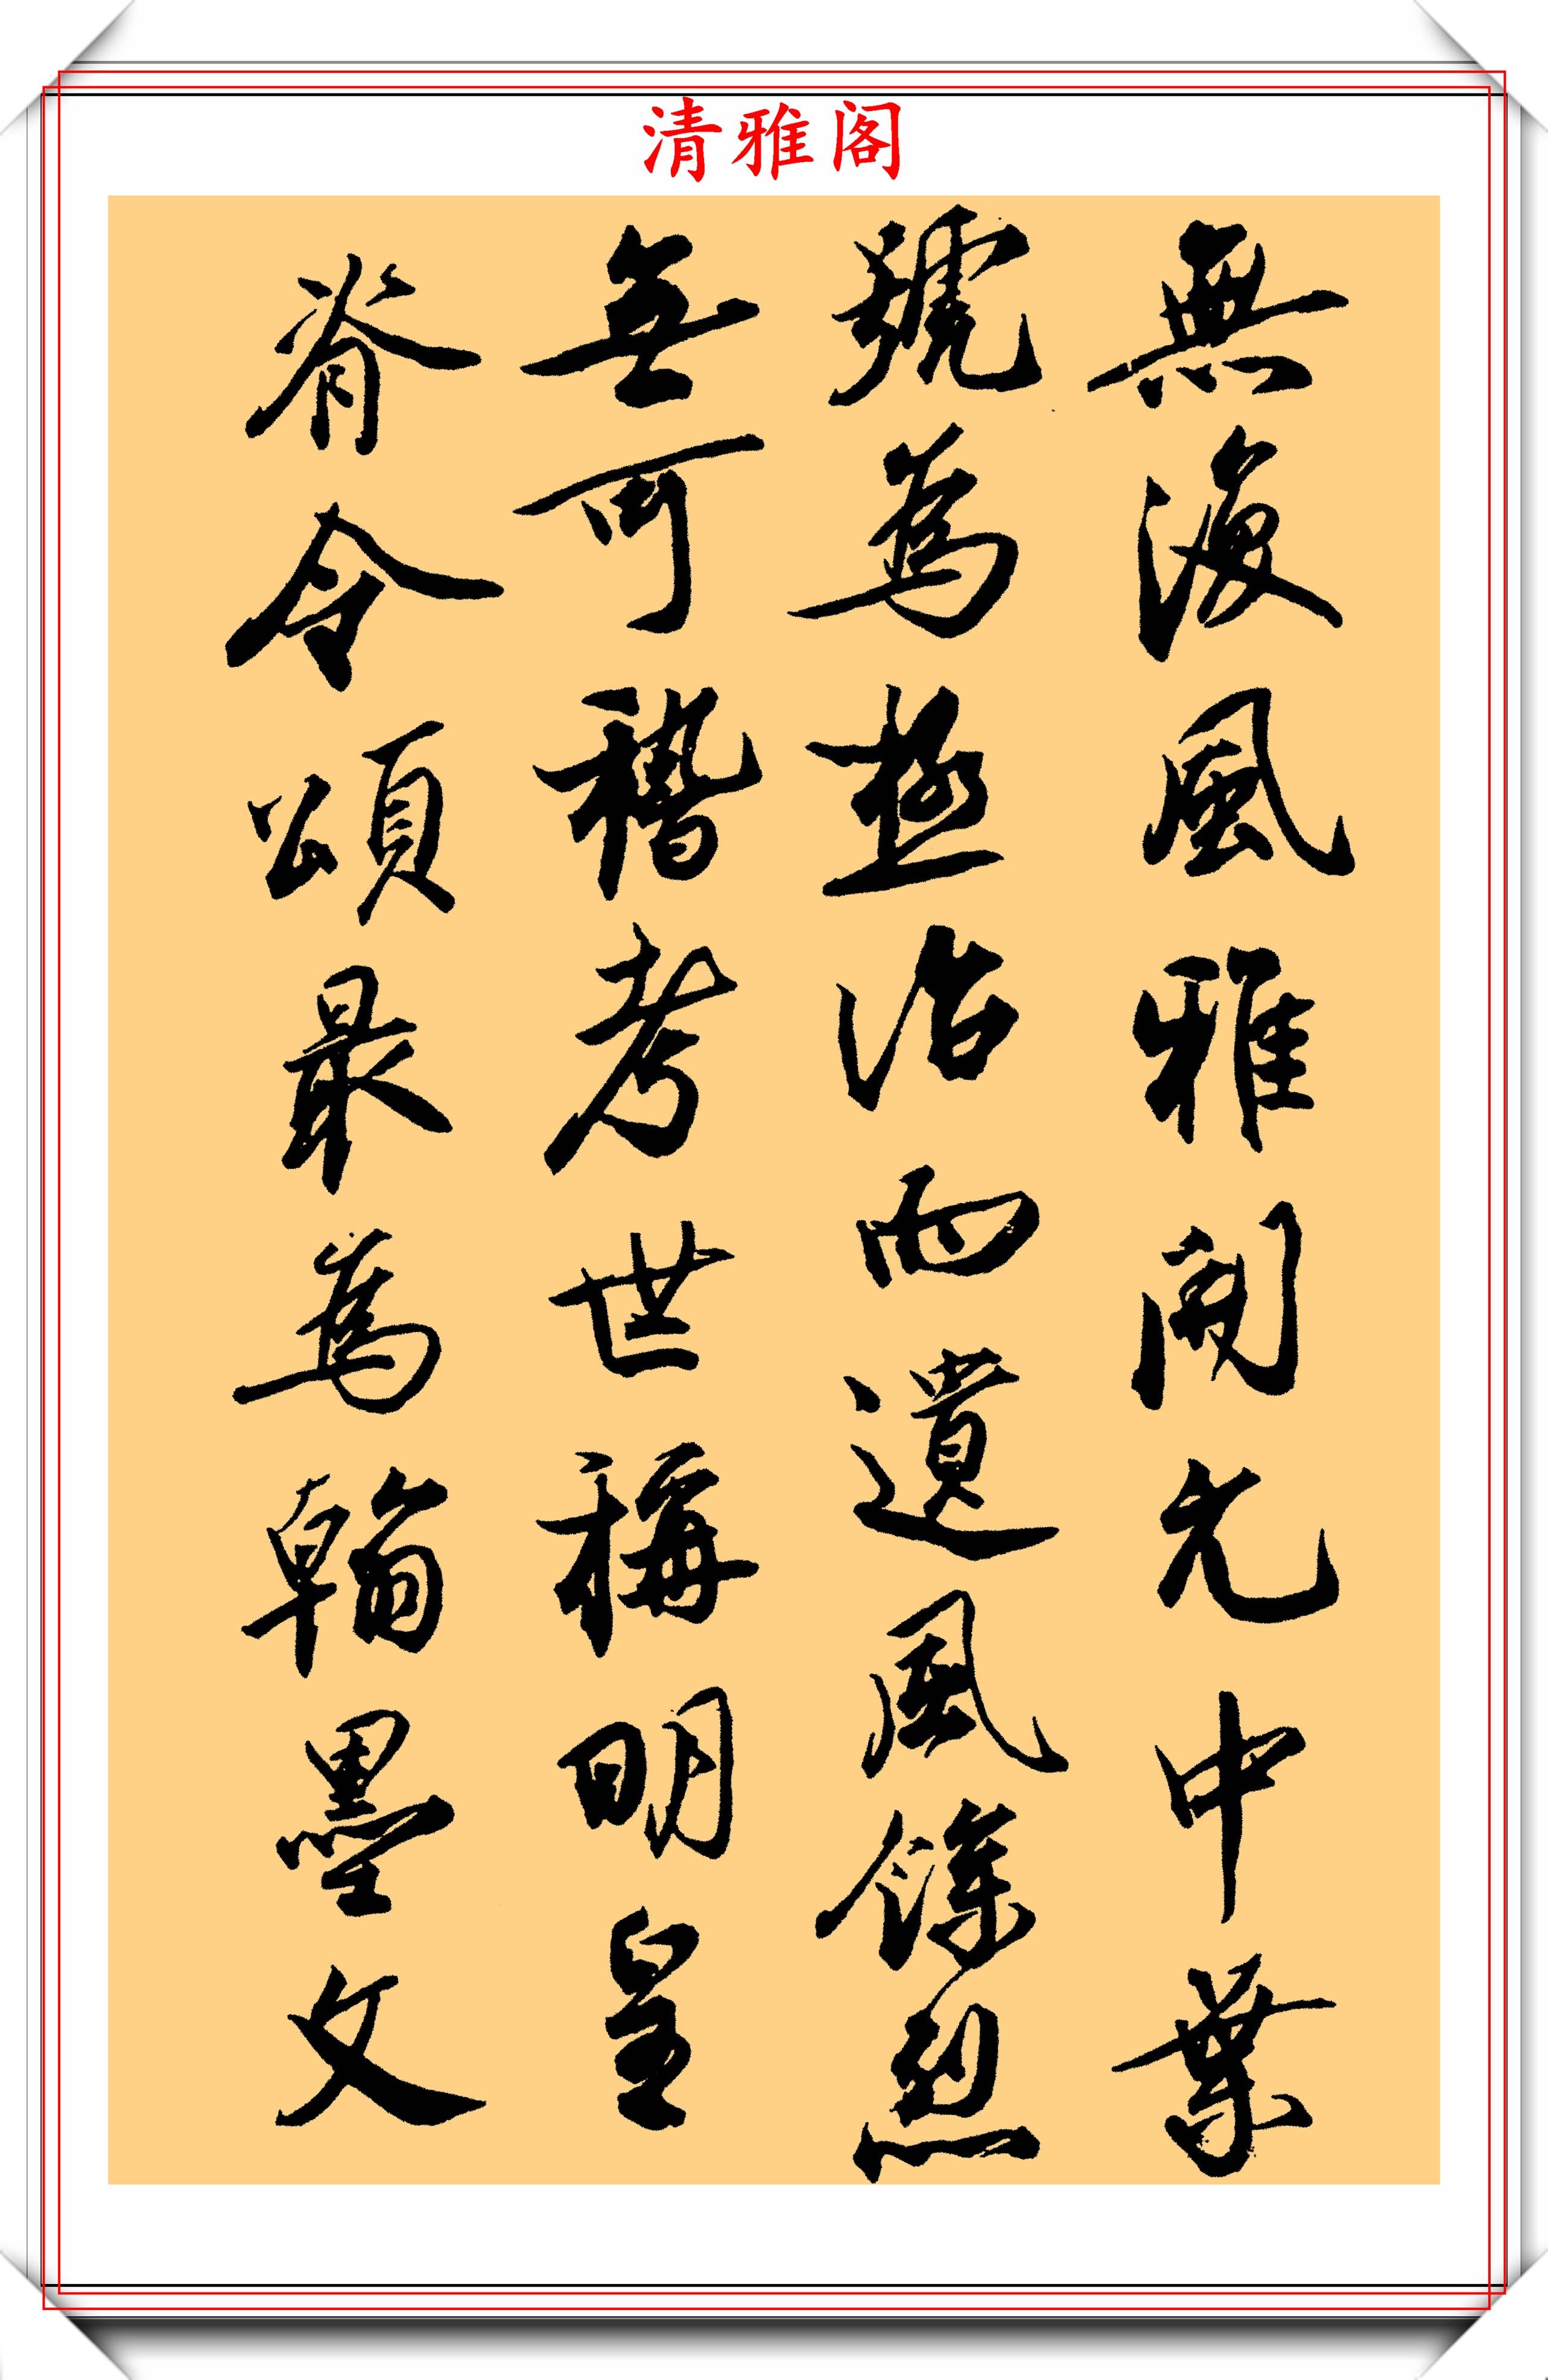 清雅阁
無復風雅開元中業
號為極治而遺風餘烈
無可稽考世稱明皇
脊令頌最為翰墨文